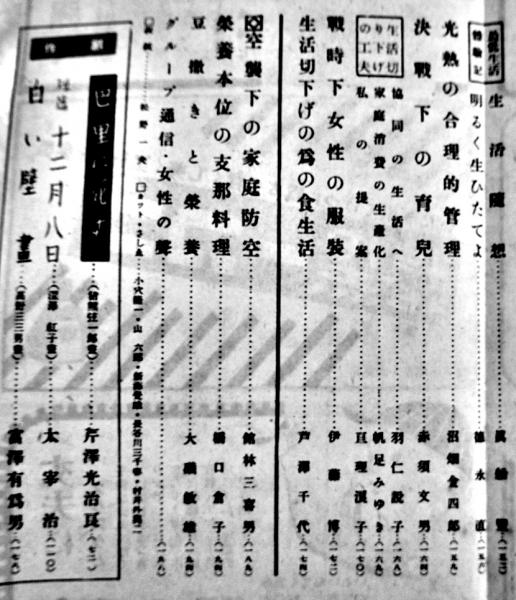 生活隨想……眞船豐(一五二)
明るく生ひたてよ……德永直(一五六)
光熱の合理的管理……沼畑金四郎(一五九)
決戰下の育兒……赤須文男(一六四)
生活切り下げの工夫
協同の生活へ……羽仁說子(一六八)
家庭消費の生產化……帆足みゆき(一六九)
私の提案……亘理淑子(一七〇)
戰時下女性の服裝……伊藤博(一七二)
生活切下げの爲の食生活……芦澤千代(一七四)
空襲下の家庭防空……館林三喜男(一八九)
榮養本位の支那料理……橋口倉子(一九四)
豆撒きと榮養……大磯敏雄(一九四)
グループ通信・女性の聲……(一八八)
表紙……松野一夫
カット・さしゑ……小穴隆一・山六郎・長谷川三千春・村井外興二
創作
巴里に死す……(猪熊弦一郎畫)……芹澤光治良(七二)
十二月八日……(畫)……太宰治(一二〇)
白い壁畫……(高野三三男畫)……富澤有爲男(一七八)